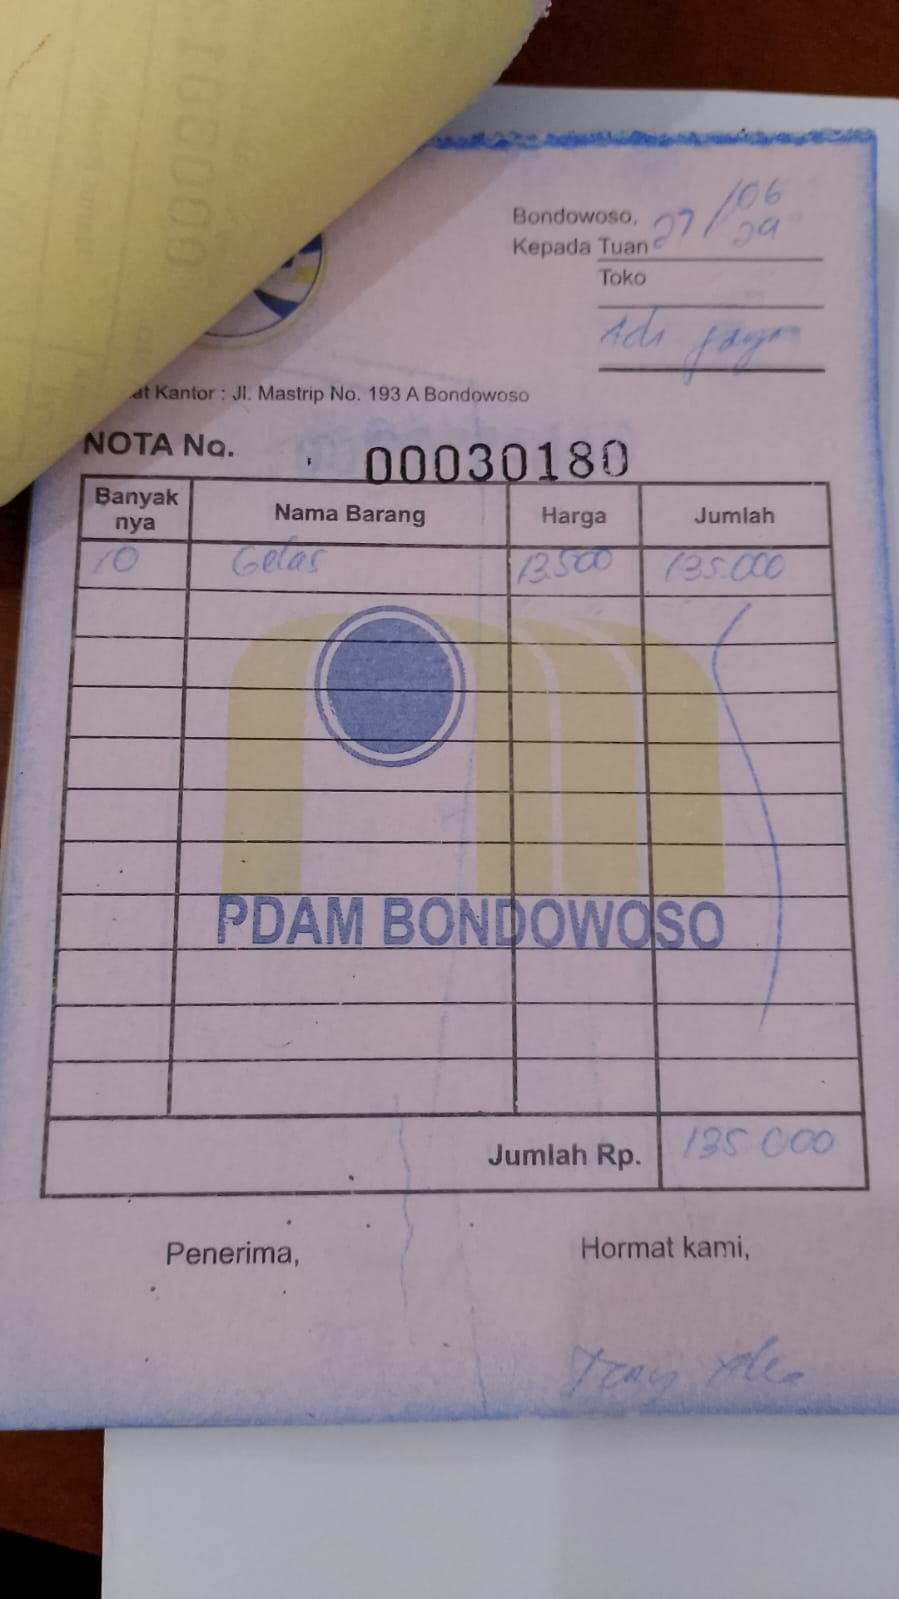 Bondowoso, 27/06
Kepada Tuan
Toko
Adi Jaya
at Kantor : Jl. Mastrip No. 193 A Bondowoso
NOTA No. 00030180
Banyak nya Nama Barang Harga Jumlah
10 Gelas 13.500 135.000
PDAM BONDOWOSO
Jumlah Rp. 135.000
Penerima, Hormat kami,